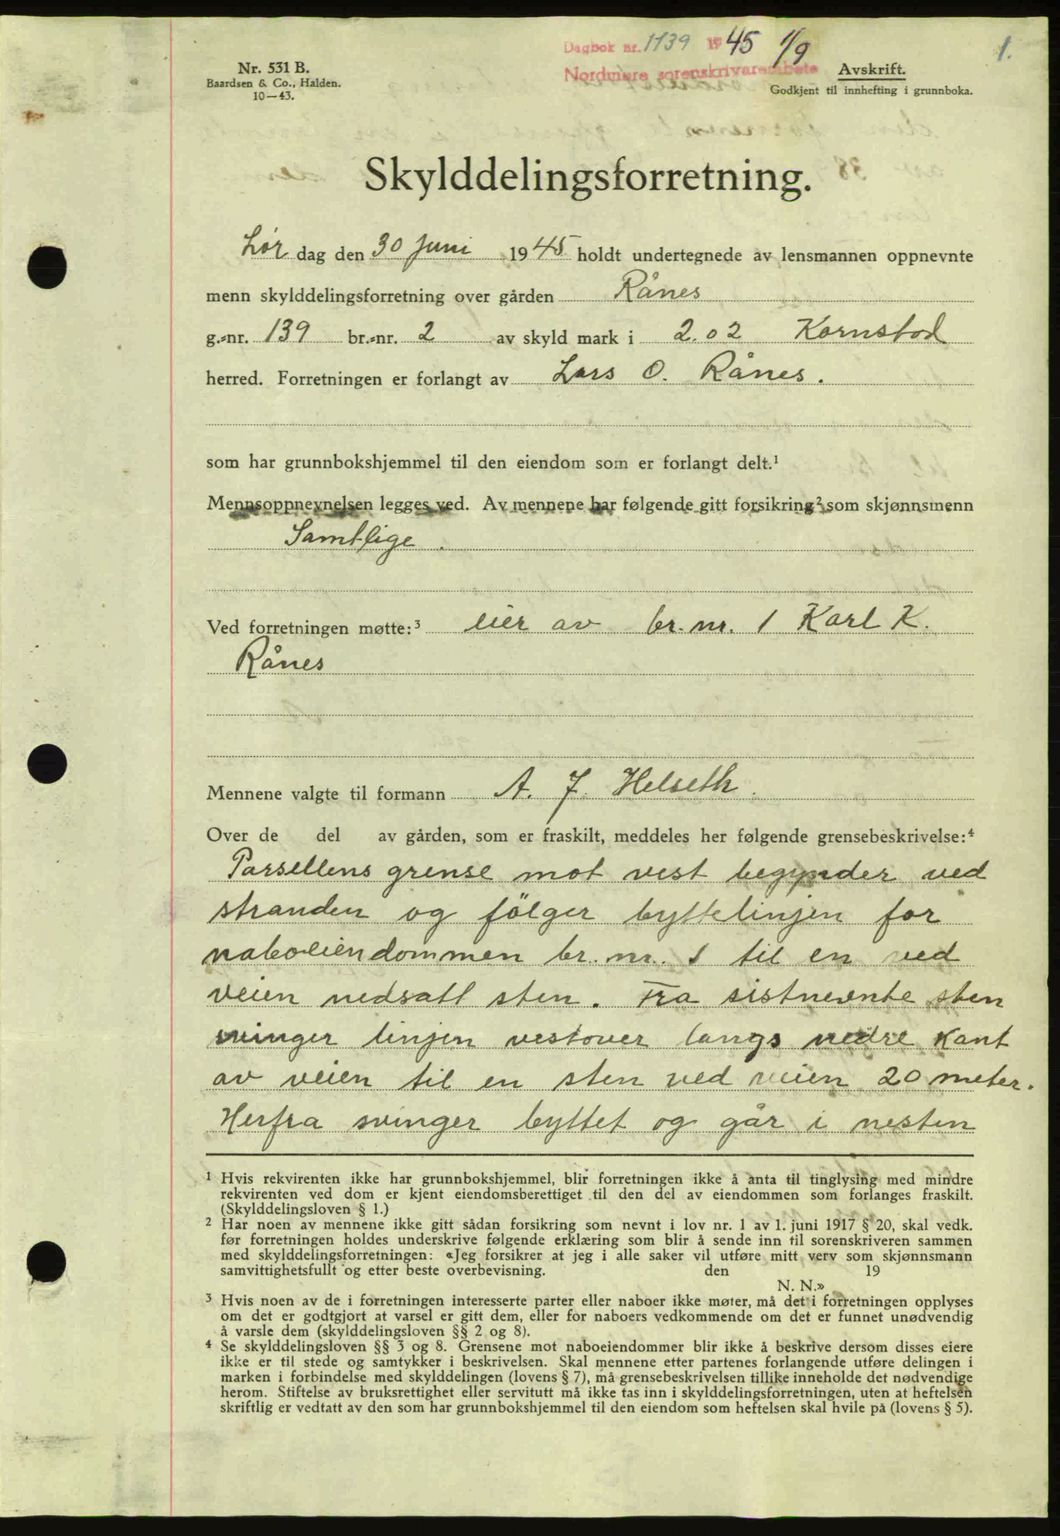 Dagbok nr. 1139 1945 1/9
1.
Nordmøre sorenskrivarembete
Nr. 531 B.
Baardsen & Co., Halden.
10-43.
Avskrift.
Godkjent til innhefting i grunnboka.
Skylddelingsforretning.
Lør dag den 30 juni 1945 holdt undertegnede av lensmannen oppnevnte
menn skylddelingsforretning over gården Rånes
g.-nr. 139 br.-nr. 2 av skyld mark i 2.02 Kornstad
herred. Forretningen er forlangt av Lars O. Rånes.
som har grunnbokshjemmel til den eiendom som er forlangt delt.¹
Mennsoppnevnelsen legges ved. Av mennene har følgende gitt forsikring² som skjønnsmenn
Samtlige.
Ved forretningen møtte:³ eier av br. nr. 1 Karl K.
Rånes
Mennene valgte til formann A. J. Helseth.
Over de del av gården, som er fraskilt, meddeles her følgende grensebeskrivelse:⁴
Parsellens grense mot vest begynder ved
stranden og fölger byttelinjen for
naboeiendommen br. nr. 1 til en ved
veien nedsatt sten. Fra sistnevnte sten
svinger linjen vestover langs nedre kant
av veien til en sten ved veien 20 meter.
Herfra svinger byttet og går i nesten
¹ Hvis rekvirenten ikke har grunnbokshjemmel, blir forretningen ikke å anta til tinglysing med mindre
rekvirenten ved dom er kjent eiendomsberettiget til den del av eiendommen som forlanges fraskilt.
(Skylddelingsloven § 1.)
² Har noen av mennene ikke gitt sådan forsikring som nevnt i lov nr. 1 av 1. juni 1917 § 20, skal vedk.
før forretningen holdes underskrive følgende erklæring som blir å sende inn til sorenskriveren sammen
med skylddelingsforretningen: «Jeg forsikrer at jeg i alle saker vil utføre mitt verv som skjønnsmann
samvittighetsfullt og etter beste overbevisning. den 19
N. N.»
³ Hvis noen av de i forretningen interesserte parter eller naboer ikke møter, må det i forretningen opplyses
om det er godtgjort at varsel er gitt dem, eller for naboers vedkommende om det er funnet unødvendig
å varsle dem (skylddelingsloven §§ 2 og 8).
⁴ Se skylddelingsloven §§ 3 og 8. Grensene mot naboeiendommer blir ikke å beskrive dersom disses eiere
ikke er til stede og samtykker i beskrivelsen. Skal mennene etter partenes forlangende utføre delingen i
marken i forbindelse med skylddelingen (lovens § 7), må grensebeskrivelsen tillike inneholde det nødvendige
herom. Stiftelse av bruksrettighet eller servitutt må ikke tas inn i skylddelingsforretningen, uten at heftelsen
skriftlig er vedtatt av den som har grunnbokshjemmel til den eiendom som heftelsen skal hvile på (lovens § 5).